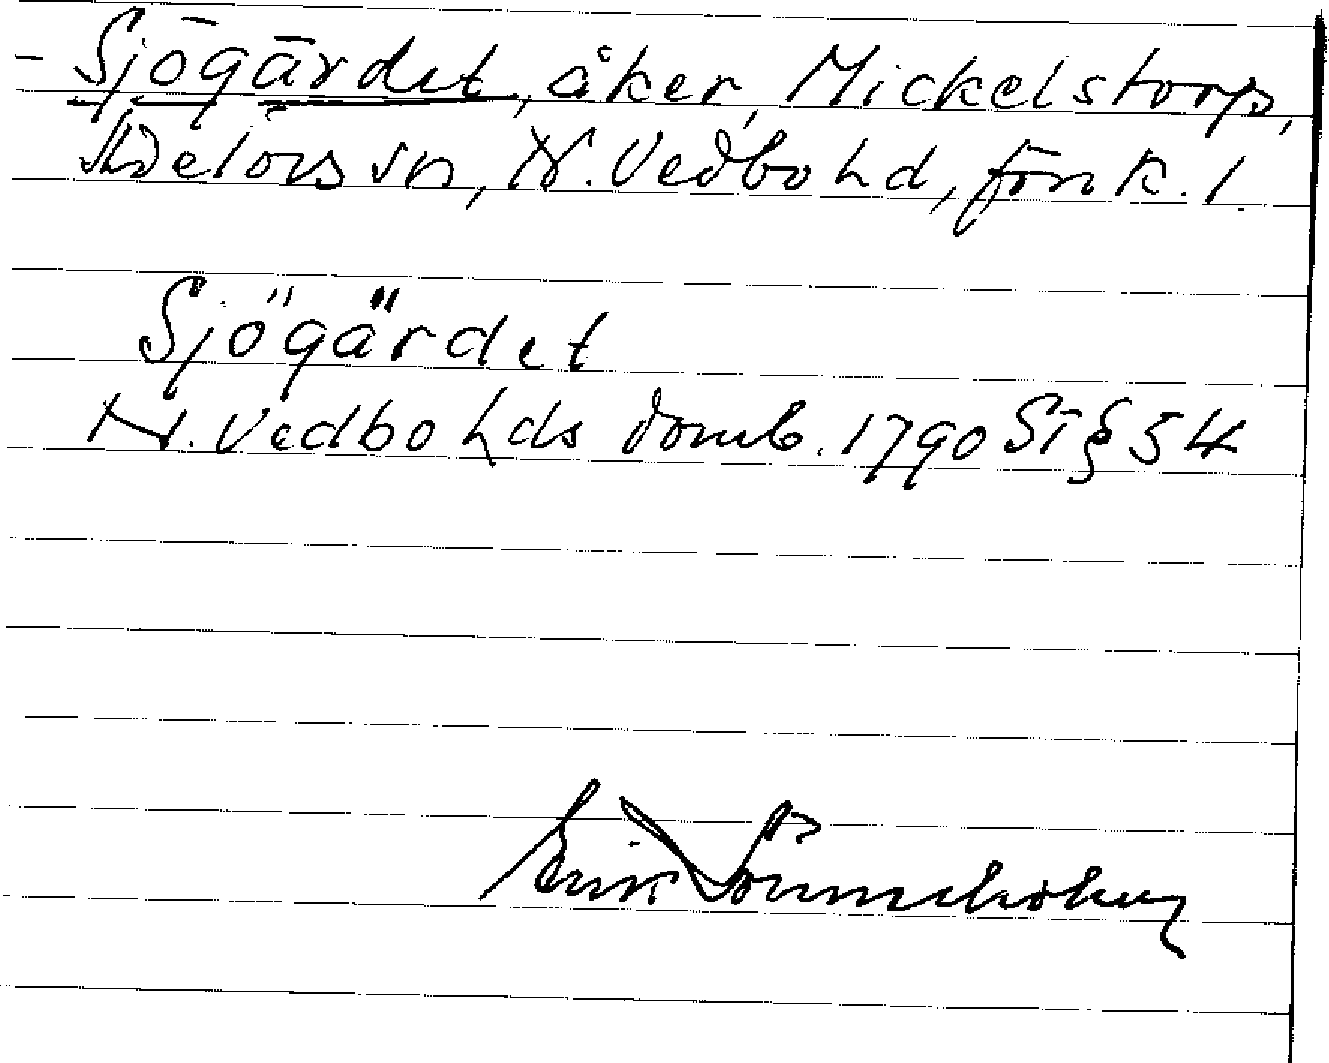 - Sjögärdet, åker, Mickelstorp,
Adelövs sn, N. Vedbo hd, Jönk. l.
Sjögärdet
N. Vedbo hds domb. 1790 ST § 54
Erik